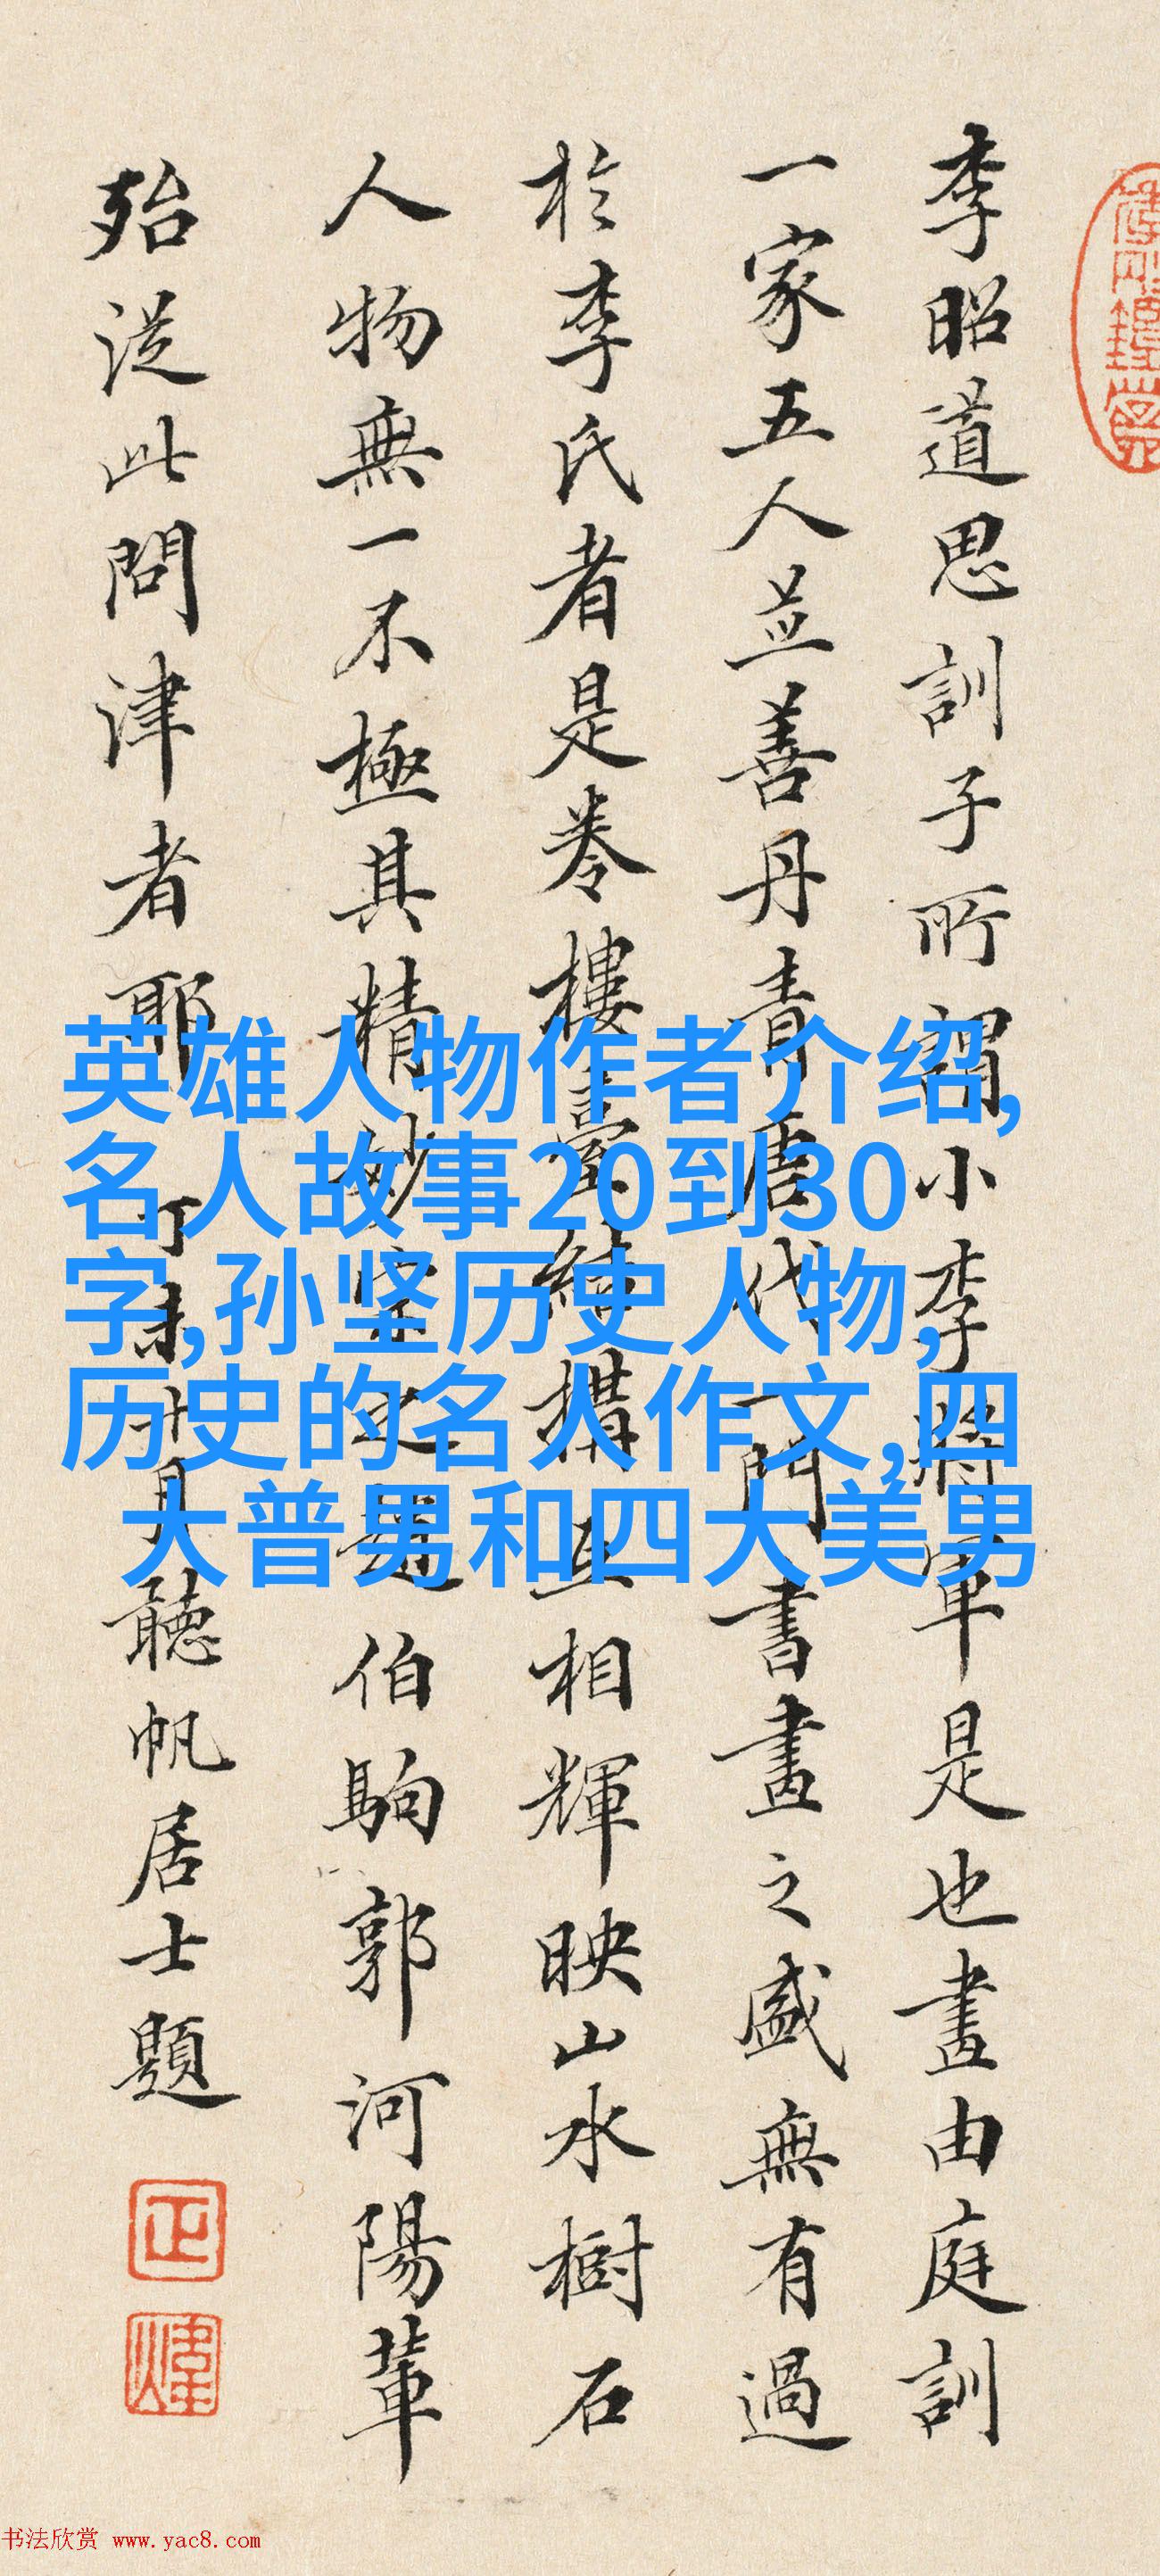 李昭道思訓子所謂小李將軍是也畫由庭訓
一家五人並善丹青唐代一門書畫之盛無有過
於李氏者是卷樓臺結構互相輝映山水樹石
人物無一不極其精妙室之趙伯駒郭河陽輩
殆從此問津者耶 丁未廿月聽帆居士題
英雄人物作者介绍,
名人故事20到30
字,孙坚历史人物,
历史的名人作文,四
大普男和四大美男
书法欣赏 www.yac8.com